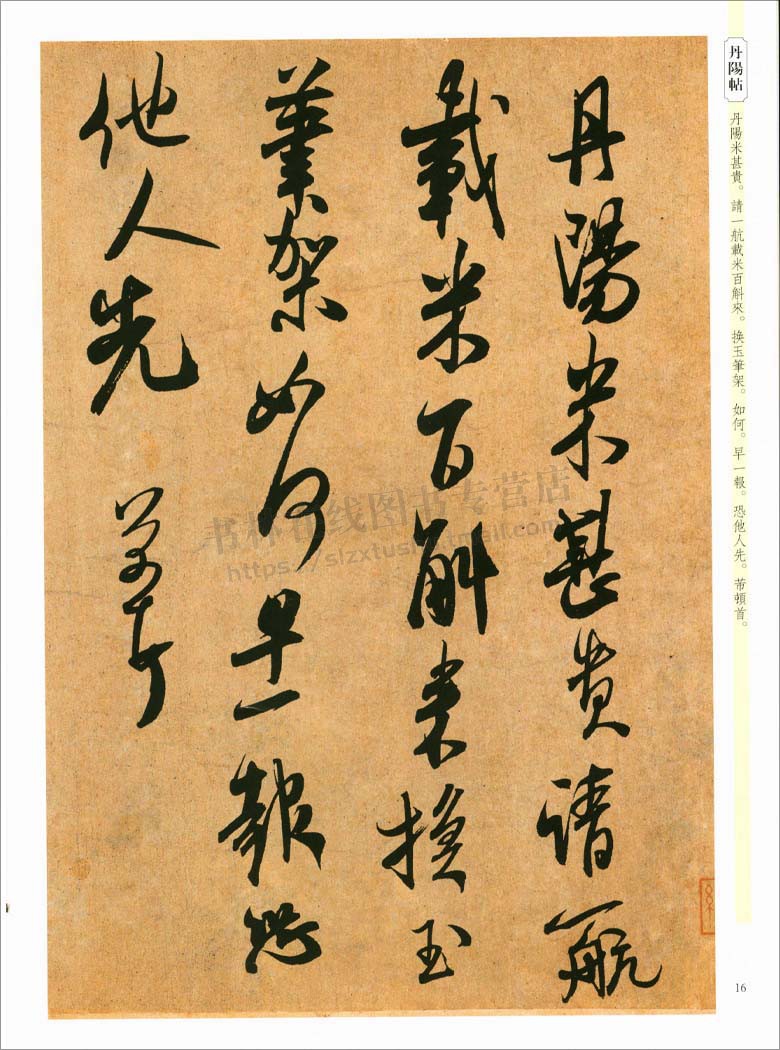 丹陽帖
丹陽米甚貴。請一航載米百斛來。換玉筆架。如何。早一報。恐他人先。芾頓首。
丹陽米甚貴請一航
載米百斛来換玉
筆架如何早一報恐
他人先 芾頓首
书林在线图书专营店
16